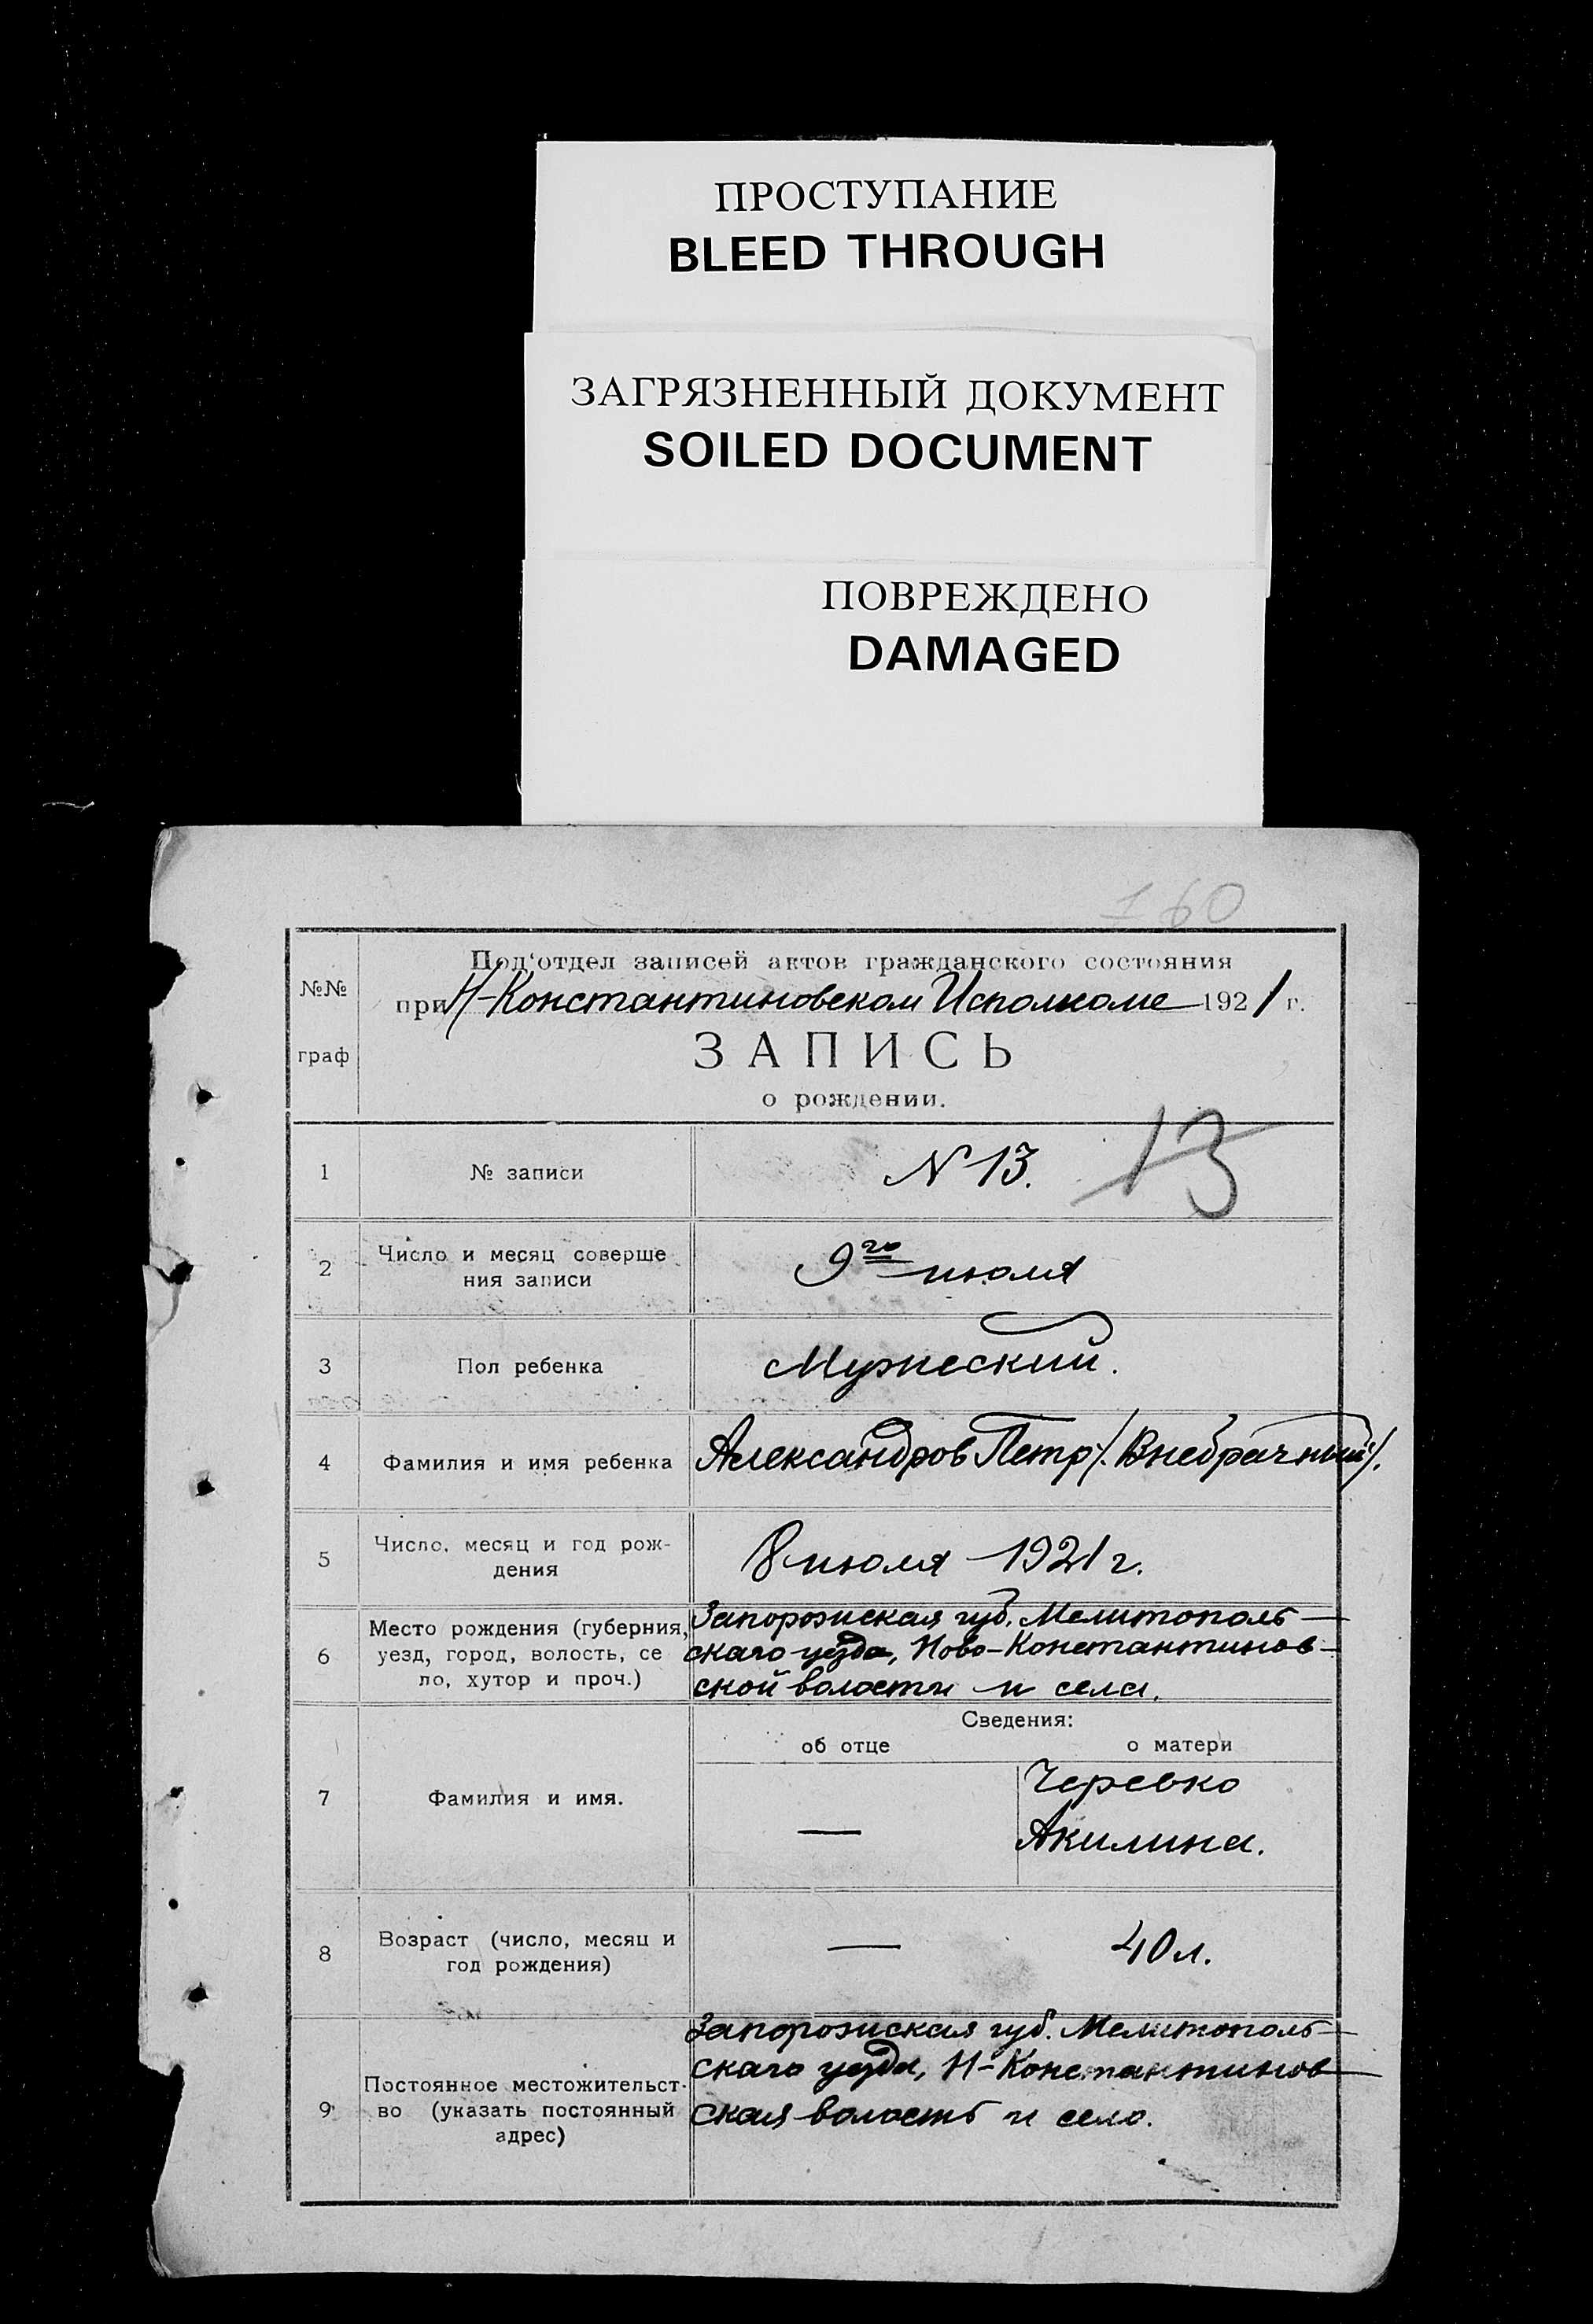 ПРОСТУПАНИЕ
BLEED THROUGH
ЗАГРЯЗНЕННЫЙ ДОКУМЕНТ
SOILED DOCUMENT
ПОВРЕЖДЕНО
DAMAGED
160
№№ граф
Под'отдел записей актов гражданского состояния
при Н-Константиновском Исполкоме 1921 г.
ЗАПИСЬ
о рождении.
1 № записи N 13. 13
2 Число и месяц соверше
ния записи 9го июля
3 Пол ребенка Мужеский.
4 Фамилия и имя ребенка Александров Петр /.Внебрачный/.
5 Число, месяц и год рож-
дения 8 июля 1921 г.
6 Место рождения (губерния,
уезд, город, волость, се
ло, хутор и проч.)
Запорожская губ. Мелитополь-
скаго уезда, Ново-Константинов-
ской волости и села.
Сведения:
об отце о матери
7 Фамилия и имя. — Черевко
Акилина.
8 Возраст (число, месяц и
год рождения) — 40 л.
9 Постоянное местожительст-
во (указать постоянный
адрес)
Запорожская губ. Мелитополь-
скаго уезда, Н-Константинов-
ская волость и село.